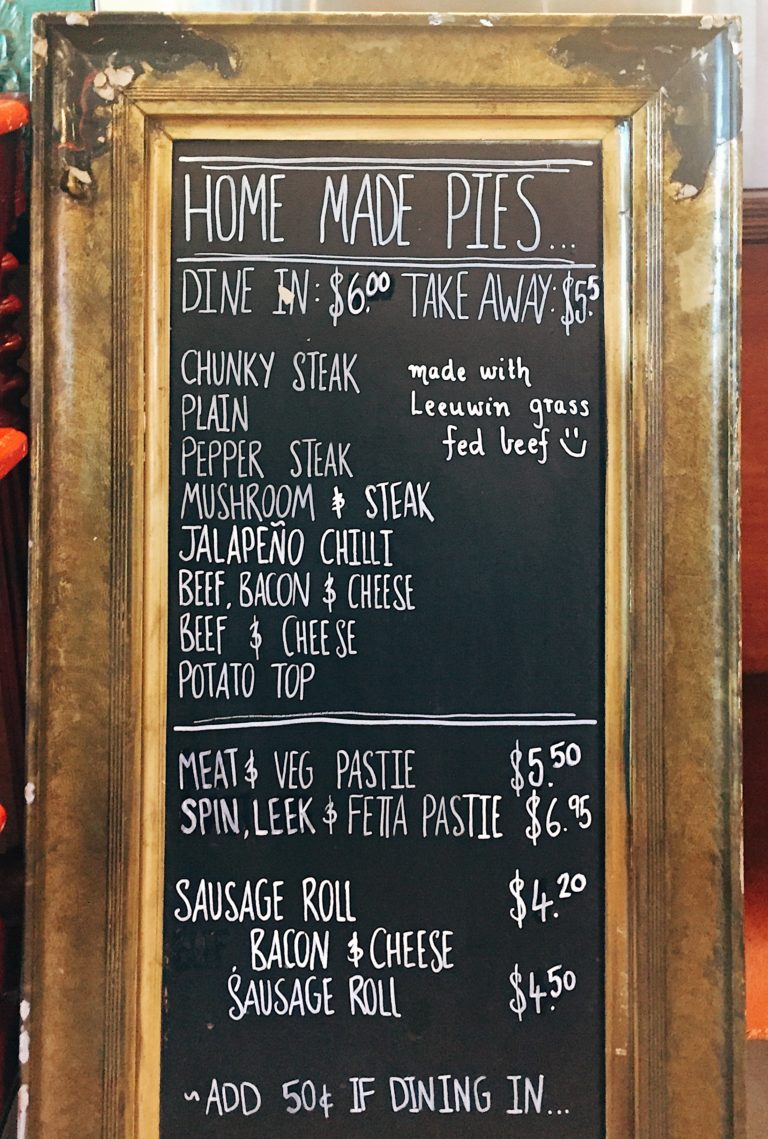 HOME MADE PIES...
DINE IN: $6.00 TAKE AWAY: $5.5
CHUNKY STEAK made with
PLAIN Leeuwin grass
PEPPER STEAK fed beef
MUSHROOM & STEAK
JALAPEÑO CHILLI
BEEF, BACON & CHEESE
BEEF & CHEESE
POTATO TOP
MEAT & VEG PASTIE $5.50
SPIN, LEEK & FETTA PASTIE $6.95
SAUSAGE ROLL $4.20
BACON & CHEESE
SAUSAGE ROLL $4.50
~ADD 50¢ IF DINING IN...